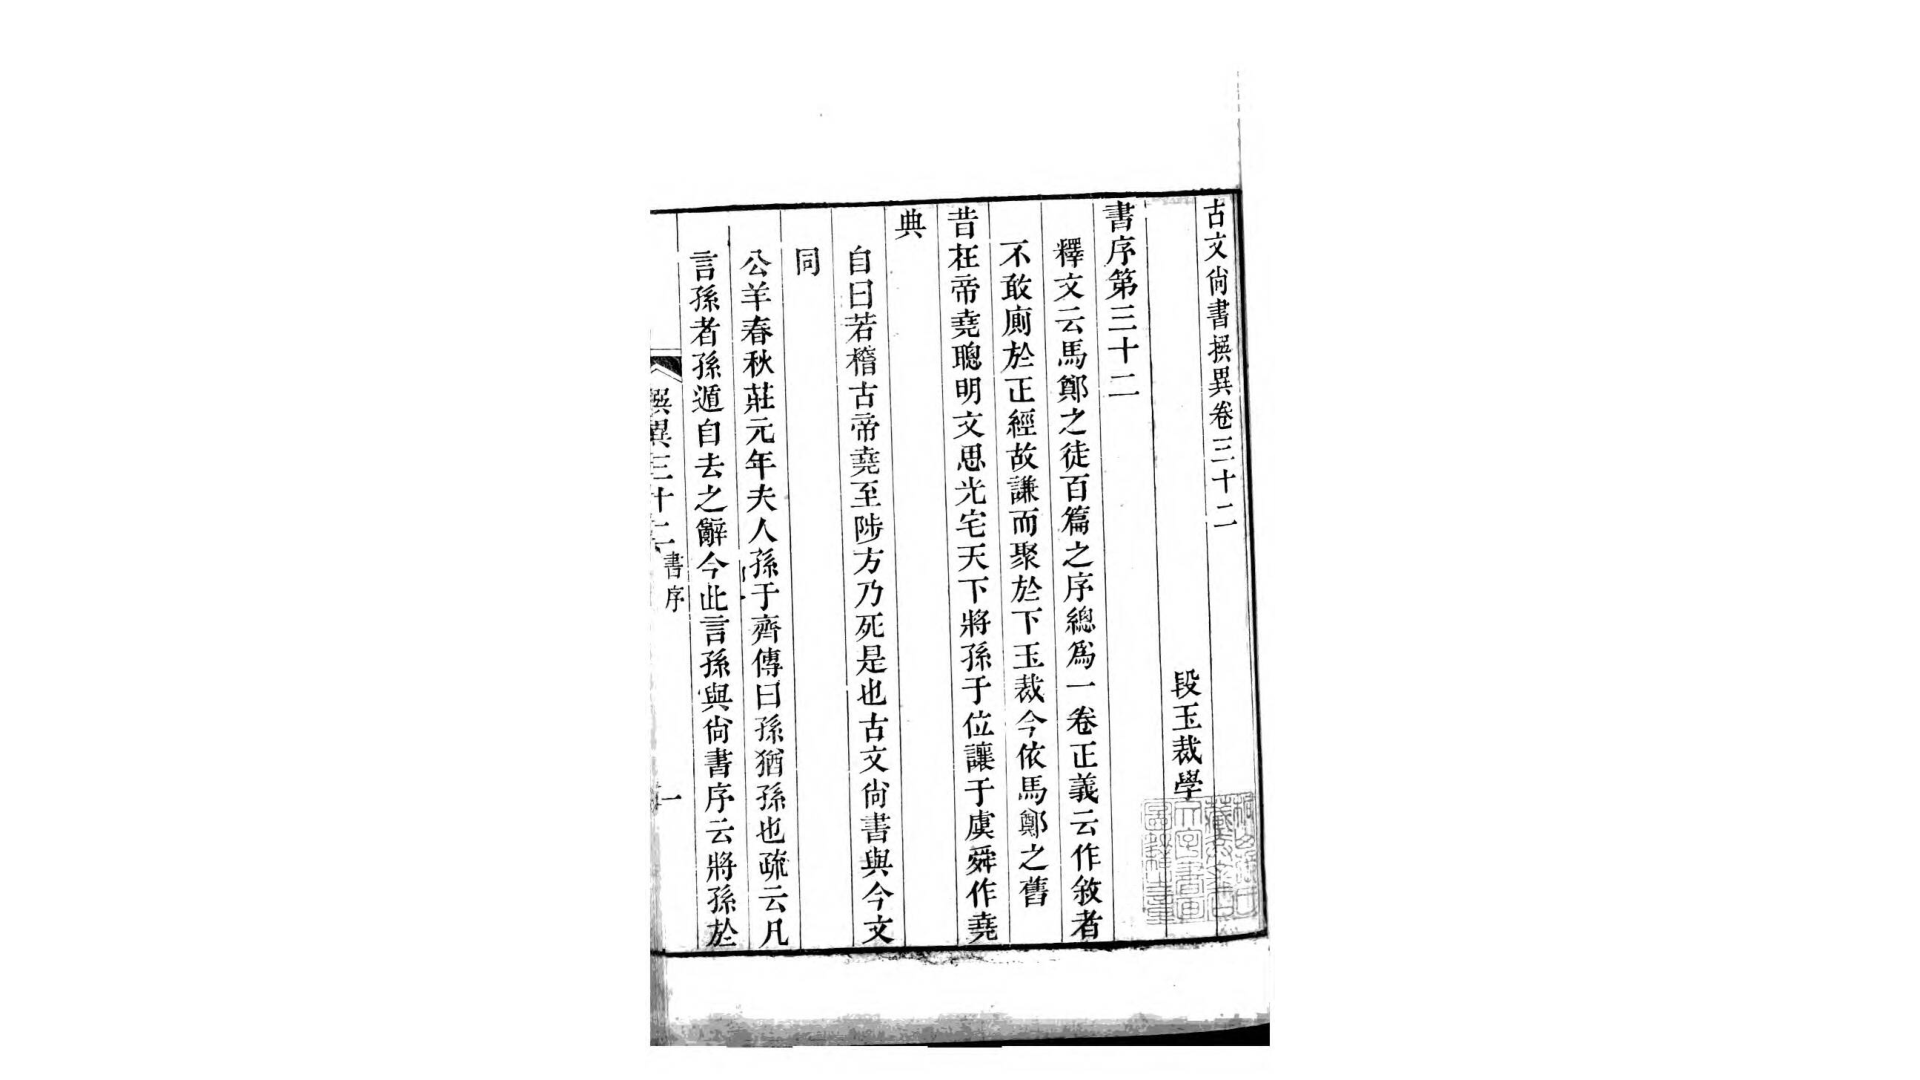 古文尙書撰異卷三十二
段玉裁學
書序第三十二
釋文云馬鄭之徒百篇之序總爲一卷正義云作敘者
不敢廁於正經故謙而聚於下玉裁今依馬鄭之舊
昔在帝堯聰明文思光宅天下將孫于位讓于虞舜作堯
典
自曰若稽古帝堯至陟方乃死是也古文尙書與今文
同
公羊春秋莊元年夫人孫于齊傳曰孫猶孫也疏云凡
言孫者孫遁自去之辭今此言孫與尙書序云將孫於
撰異三十二 書序
一